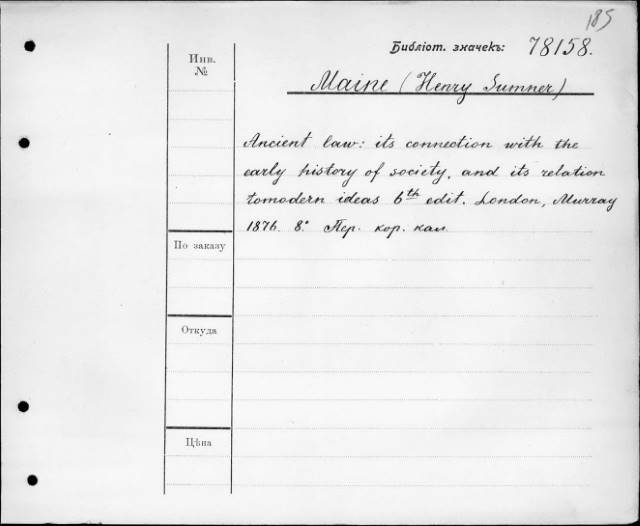 185
Библіот. значекъ: 78158.
Инв. №
Maine (Henry Sumner)
Ancient law: its connection with the
early history of society, and its relation
tomodern ideas 6th edit. London, Murray
1876. 8º Пер. кор. кал.
По заказу
Откуда
Цѣна